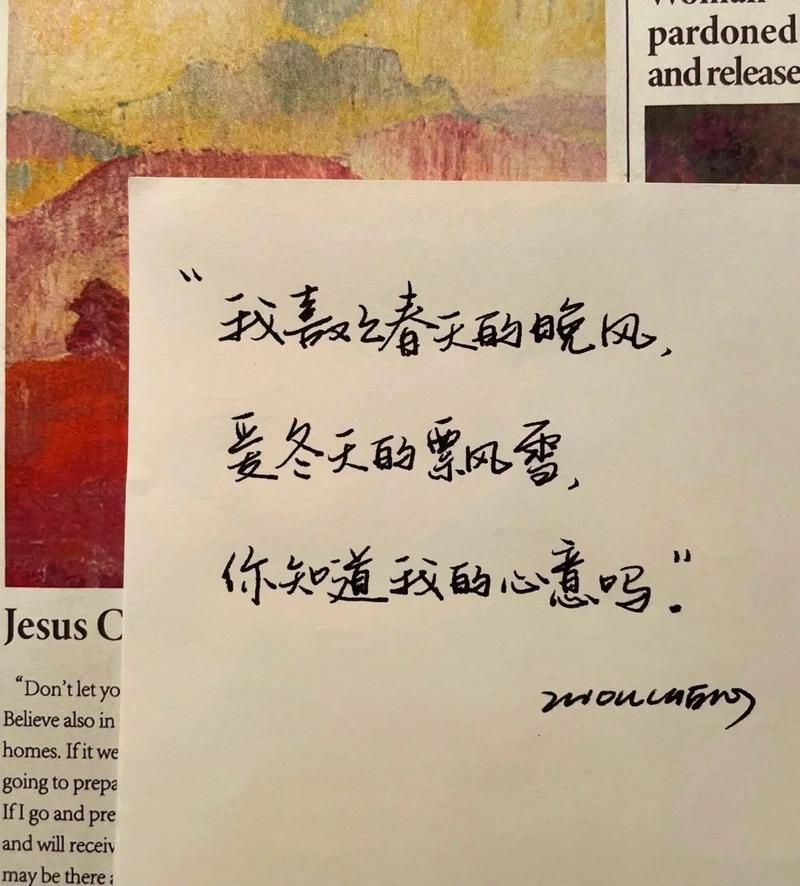 Woman
pardoned
and release
“我喜欢春天的晚风,
爱冬天的飘风雪,
你知道我的心意吗.”
ZHOUCHENG
Jesus C
“Don't let yo
Believe also in
homes. If it we
going to prepa
If I go and pre
and will receiv
may be there a